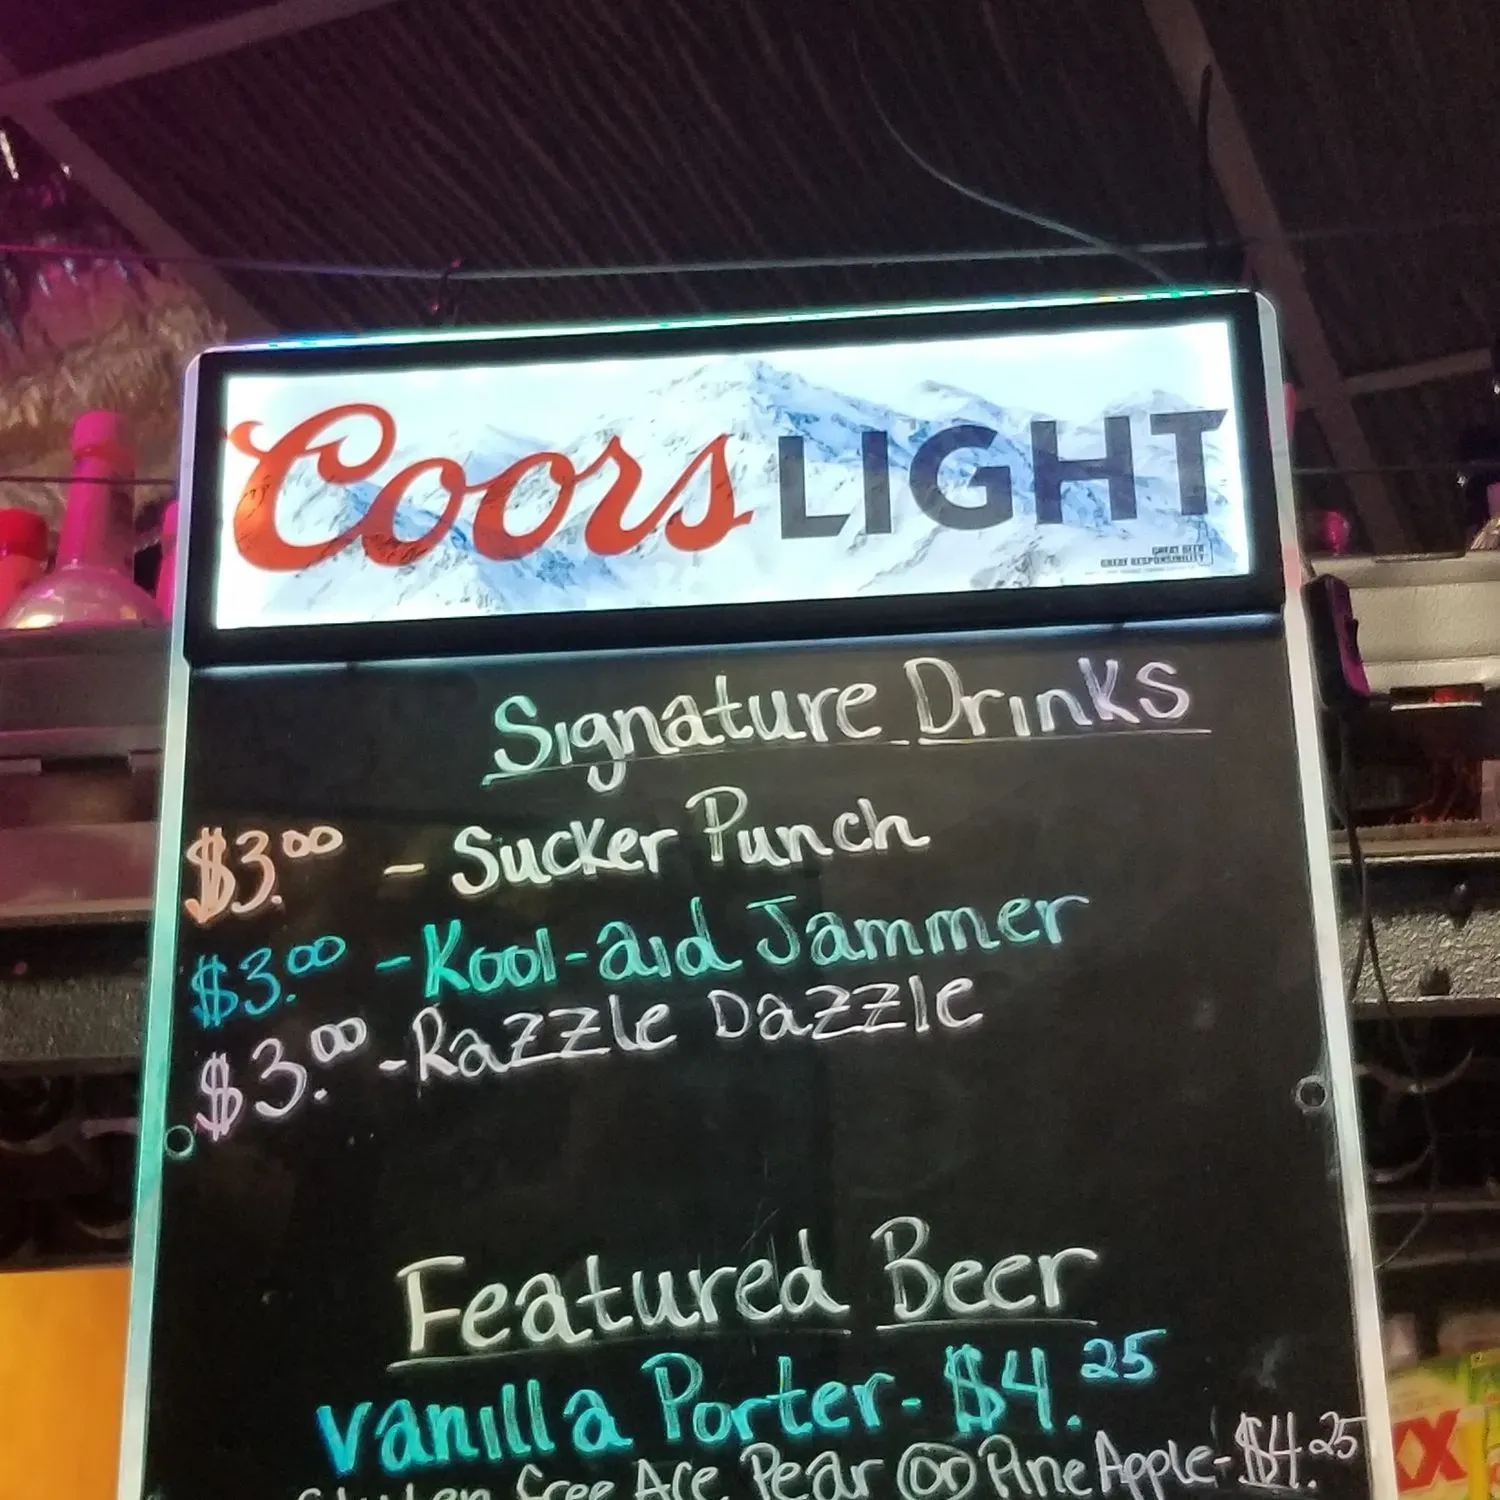 Coors LIGHT
GREAT BEER
GREAT RESPONSIBILITY
Signature Drinks
$3.00 - Sucker Punch
$3.00 - Kool-aid Jammer
$3.00 - Razzle Dazzle
Featured Beer
Vanilla Porter - $4.25
Gluten free Ace Pear or Pine Apple - $4.25
XX